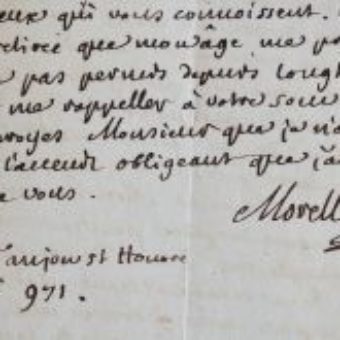 ceux qui vous connoissent.
que mon âge me
pas permis depuis longt
me rappeller à votre souv
croyez Monsieur que je n'a
l'accueil obligeant que j'ai
vous.
Morell
anjou st Honoré
971.